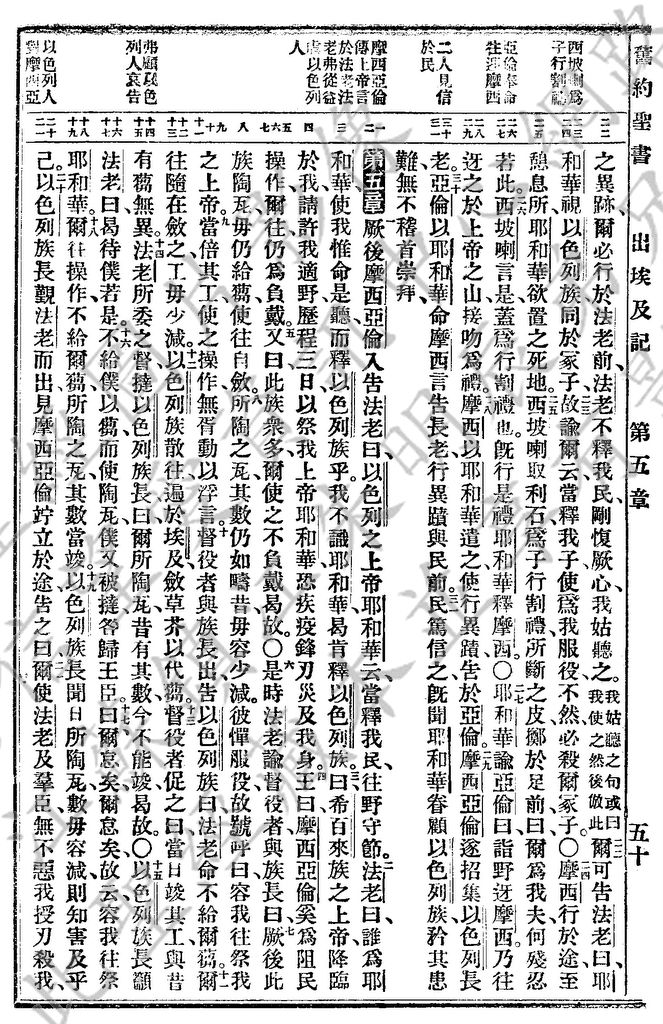 舊約聖書　出埃及記　第五章　五十
西坡喇爲
子行割禮
亞倫奉命
往迎摩西
二人見信
於民
摩西亞倫
傳上帝言
於法老法
老弗從益
虐以色列
人
弗顧以色
列人哀告
以色列人
對摩西亞
之異跡、爾必行於法老前、法老不釋我民、剛愎厥心、我姑聽之。我姑聽之句或曰我使之然後倣此爾可告法老曰、耶
和華視以色列族同於冢子、故諭爾云、當釋我子、使爲我服役、不然必殺爾冢子。〇摩西行於途、至
憩息所、耶和華欲置之死地、西坡喇取利石、爲子行割禮、所斷之皮、擲於足前、曰、爾爲我夫、何殘忍
若此、西坡喇言是、蓋爲行割禮也、旣行是禮、耶和華釋摩西。〇耶和華諭亞倫曰、詣野迓摩西、乃往
迓之於上帝之山、接吻爲禮、摩西以耶和華遣之使行異蹟、告於亞倫、摩西亞倫遂招集以色列長
老、亞倫以耶和華命摩西言告長老、行異蹟與民前、民篤信之、旣聞耶和華眷顧以色列族、矜其患
難、無不稽首崇拜。
第五章　厥後摩西亞倫入告法老曰、以色列之上帝耶和華云、當釋我民、往野守節、法老曰、誰爲耶
和華、使我惟命是聽、而釋以色列族乎、我不識耶和華、曷肯釋以色列族。曰、希百來族之上帝降臨
於我、請許我適野、歷程三日、以祭我上帝耶和華、恐疾疫鋒刃災及我身、王曰、摩西亞倫奚爲阻民
操作、爾往仍爲負戴。又曰、此族衆多、爾使之不負戴曷故。〇是時法老諭督役者與族長曰、厥後此
族陶瓦、毋仍給藁、使往自斂、所陶之瓦、其數仍如疇昔、毋容少減、彼憚服役、故號呼曰、容我往祭我
之上帝、當倍其工、使之操作、無胥動以浮言、督役者與族長出告以色列族曰、法老命不給爾藁、爾
往隨在斂之、工毋少減、以色列族散往、遍於埃及、斂草芥以代藁、督役者促之曰、當日竣其工、與昔
有藁無異、法老所委之督、撻以色列族長曰、爾所陶瓦、昔有其數、今不能竣曷故。〇以色列族長籲
法老曰、曷待僕若是、不給僕以藁、而使陶瓦、僕又被撻、咎歸王臣。曰、爾怠矣、爾怠矣、故云、容我往祭
耶和華、爾往操作、不給爾藁、所陶之瓦、其數當竣。以色列族長聞日所陶瓦數毋容減、則知害及乎
己、以色列族長覲法老而出、見摩西亞倫竚立於途、告之曰、爾使法老及羣臣無不惡我、授刃殺我、